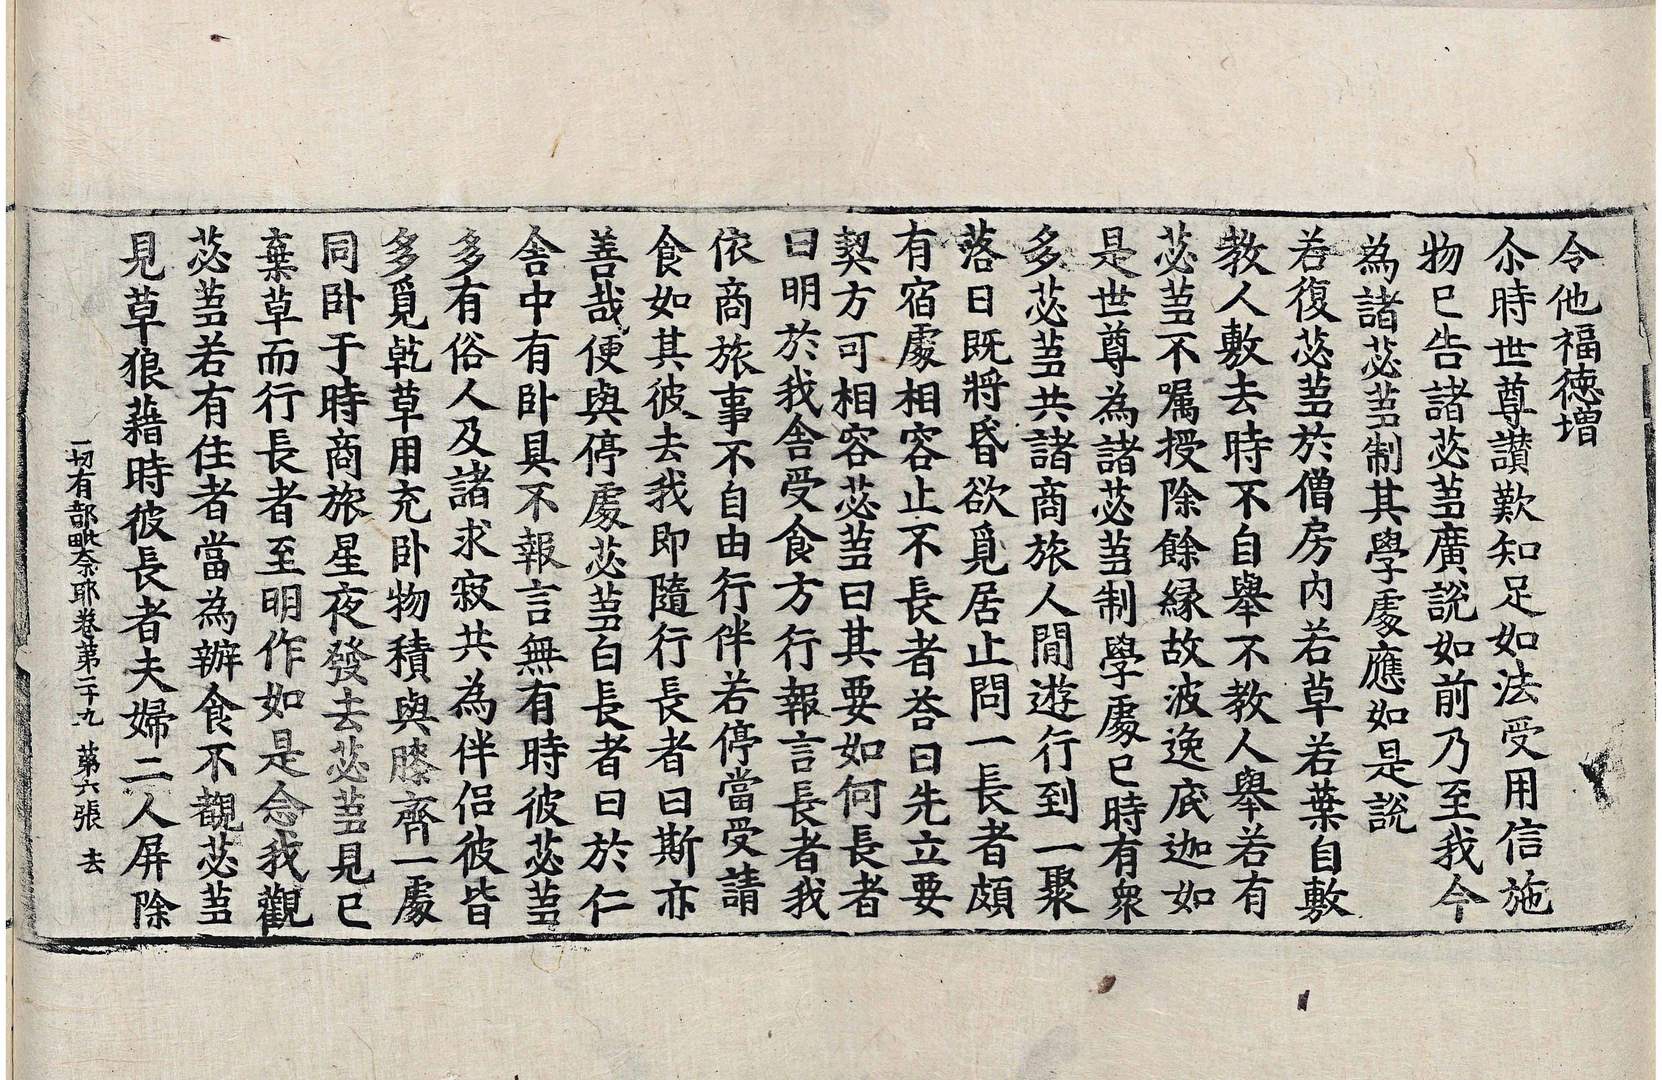 令他福德增
尒時世尊讃歎知足如法受用信施
物已告諸苾蒭廣說如前乃至我今
為諸苾蒭制其學處應如是說
若復苾蒭於僧房内若草若葉自敷
教人敷去時不自舉不教人舉若有
苾蒭不囑授除餘縁故波逸底迦如
是世尊為諸苾蒭制學處已時有衆
多苾蒭共諸商旅人閒遊行到一聚
落日既將昏欲覓居止問一長者頗
有宿處相容止不長者荅曰先立要
契方可相容苾蒭曰其要如何長者
曰明於我舍受食方行報言長者我
依商旅事不自由行伴若停當受請
食如其彼去我即隨行長者曰斯亦
善哉便與停處苾蒭白長者曰於仁
舍中有卧具不報言無有時彼苾蒭
多有俗人及諸求寂共為伴侣彼皆
多覓乾草用充卧物積與膝齊一處
同卧于時商旅星夜發去苾蒭見已
棄草而行長者至明作如是念我觀
苾蒭若有住者當為辦食不觀苾蒭
見草狼藉時彼長者夫婦二人屏除
一切有部毗奈耶卷第二十九 第六張 去